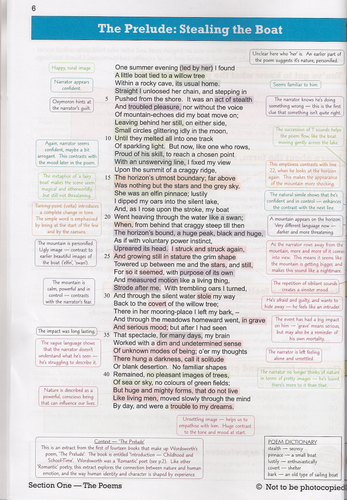 6
The Prelude: Stealing the Boat
Unclear who 'her' is. An earlier part
of the poem suggests it's nature, personified.
Happy rural image.
Narrator appears
confident.
Oxymoron hints at the
narrator's guilt.
Again, narrator seems
confident, maybe a bit
arrogant. This contrasts with
the mood later in the poem.
The metaphor of a fairy
boat makes the scene seem
magical and otherworldly
but still not threatening.
Turning point (volta) introduces
a complete change in tone.
The simple word is emphasised
by being at the start of the line
and by the caesura.
The mountain is personified.
Ugly image — contrast to
earlier beautiful images of
the boat ('elfin', 'swan').
The mountain is
calm, powerful and in
control — contrasts
with the narrator's fear.
The impact was long lasting.
The vague language shows
that the narrator doesn't
understand what he's seen —
he's struggling to describe it.
Nature is described as a
powerful, conscious being
that can influence our lives.
One summer evening (led by her) I found
A little boat tied to a willow tree
Within a rocky cave, its usual home.
Straight I unloosed her chain, and stepping in
5 Pushed from the shore. It was an act of stealth
And troubled pleasure, nor without the voice
Of mountain-echoes did my boat move on;
Leaving behind her still, on either side,
Small circles glittering idly in the moon,
10 Until they melted all into one track
Of sparkling light. But now, like one who rows,
Proud of his skill, to reach a chosen point
With an unswerving line, I fixed my view
Upon the summit of a craggy ridge,
15 The horizon's utmost boundary; far above
Was nothing but the stars and the grey sky.
She was an elfin pinnace; lustily
I dipped my oars into the silent lake,
And, as I rose upon the stroke, my boat
20 Went heaving through the water like a swan;
When, from behind that craggy steep till then
The horizon's bound, a huge peak, black and huge,
As if with voluntary power instinct,
Upreared its head. I struck and struck again,
25 And growing still in stature the grim shape
Towered up between me and the stars, and still,
For so it seemed, with purpose of its own
And measured motion like a living thing,
Strode after me. With trembling oars I turned,
30 And through the silent water stole my way
Back to the covert of the willow tree;
There in her mooring-place I left my bark, –
And through the meadows homeward went, in grave
And serious mood; but after I had seen
35 That spectacle, for many days, my brain
Worked with a dim and undetermined sense
Of unknown modes of being; o'er my thoughts
There hung a darkness, call it solitude
Or blank desertion. No familiar shapes
40 Remained, no pleasant images of trees,
Of sea or sky, no colours of green fields;
But huge and mighty forms, that do not live
Like living men, moved slowly through the mind
By day, and were a trouble to my dreams.
Seems familiar to him.
The narrator knows he's doing
something wrong — this is the first
clue that something isn't quite right.
The succession of 'l' sounds
helps the poem flow, like the boat
moving gently across the lake.
The mountain appears on the horizon.
Very different language now —
darker and more threatening.
The repetition of sibilant sounds
creates a sinister mood.
He's afraid and guilty, and wants to
hide away — he feels like an intruder.
The event has had a big impact
on him — 'grave' means serious,
but may also be a reminder of
his own mortality.
The narrator is left feeling
alone and unsettled.
Unsettling image — helps us to
empathise with him. Huge contrast
to the tone and mood at start.
Context — 'The Prelude'
This is an extract from the first of fourteen books that make up Wordsworth's
poem, 'The Prelude'. The book is entitled 'Introduction — Childhood and
School-Time'. Wordsworth was a 'Romantic' poet (see p.2). Like other
'Romantic' poetry, this extract explores the connection between nature and human
emotion, and the way human identity and character is shaped by experience.
POEM DICTIONARY
stealth — secrecy
pinnace — a small boat
lustily — enthusiastically
covert — shelter
bark — an old type of sailing boat
Section One — The Poems
© Not to be photocopied